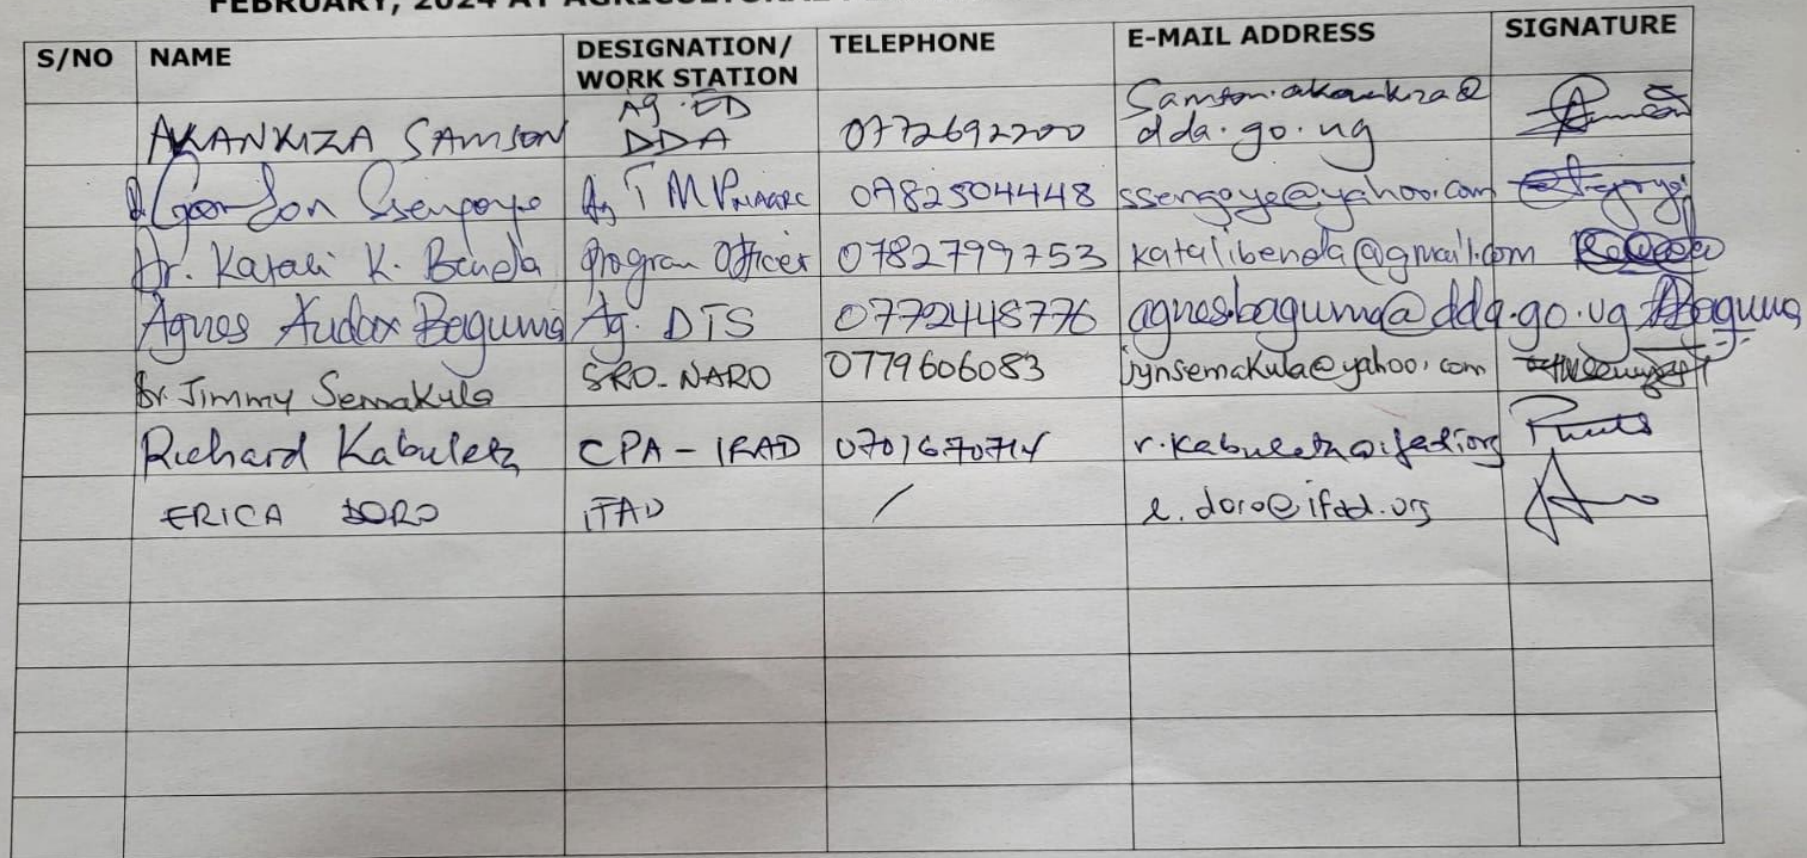 FEBRUARY, 2024 AT AGRICULTURAL
S/NO NAME DESIGNATION/ WORK STATION TELEPHONE E-MAIL ADDRESS SIGNATURE
AKANKIZA SAMSON Ag. ED DDA 0772692200 Samson.akankiza@ dda.go.ug
Gordon Ag TM 0782504448 ssengoye@yahoo.com
Dr. Katali K. Benda Program Officer 0782799753 katalibenda@gmail.com
Agnes Audax Baguma Ag. DTS 0772448776 agnes.baguma@dda.go.ug Baguma
Dr. Jimmy Semakula SRO-NARO 0779606083 jynsemakula@yahoo.com
Richard CPA - IFAD
ERICA DORO IFAD / e.doro@ifad.org